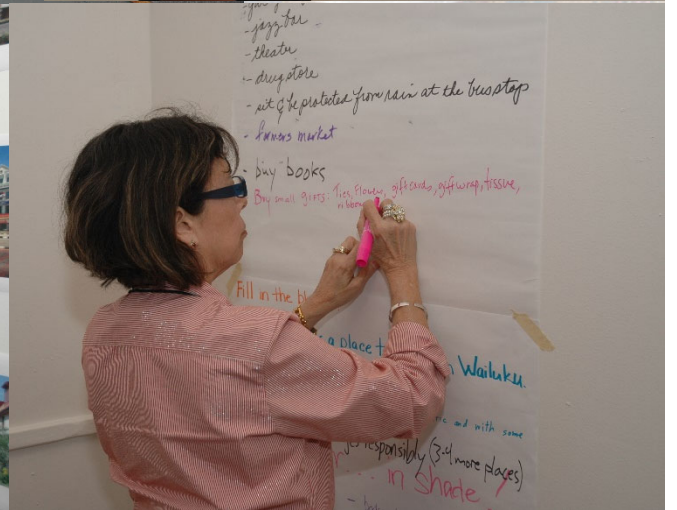 - jazz bar
- theater
- drugstore
- sit & be protected from rain at the bus stop
- farmers market
- buy books
Buy small gifts: Ties, Flowers, giftcards, giftwrap, tissue,
ribbon
Fill in the
a place Wailuku.
and with some
responsibly (3-4 more places)
... in shade